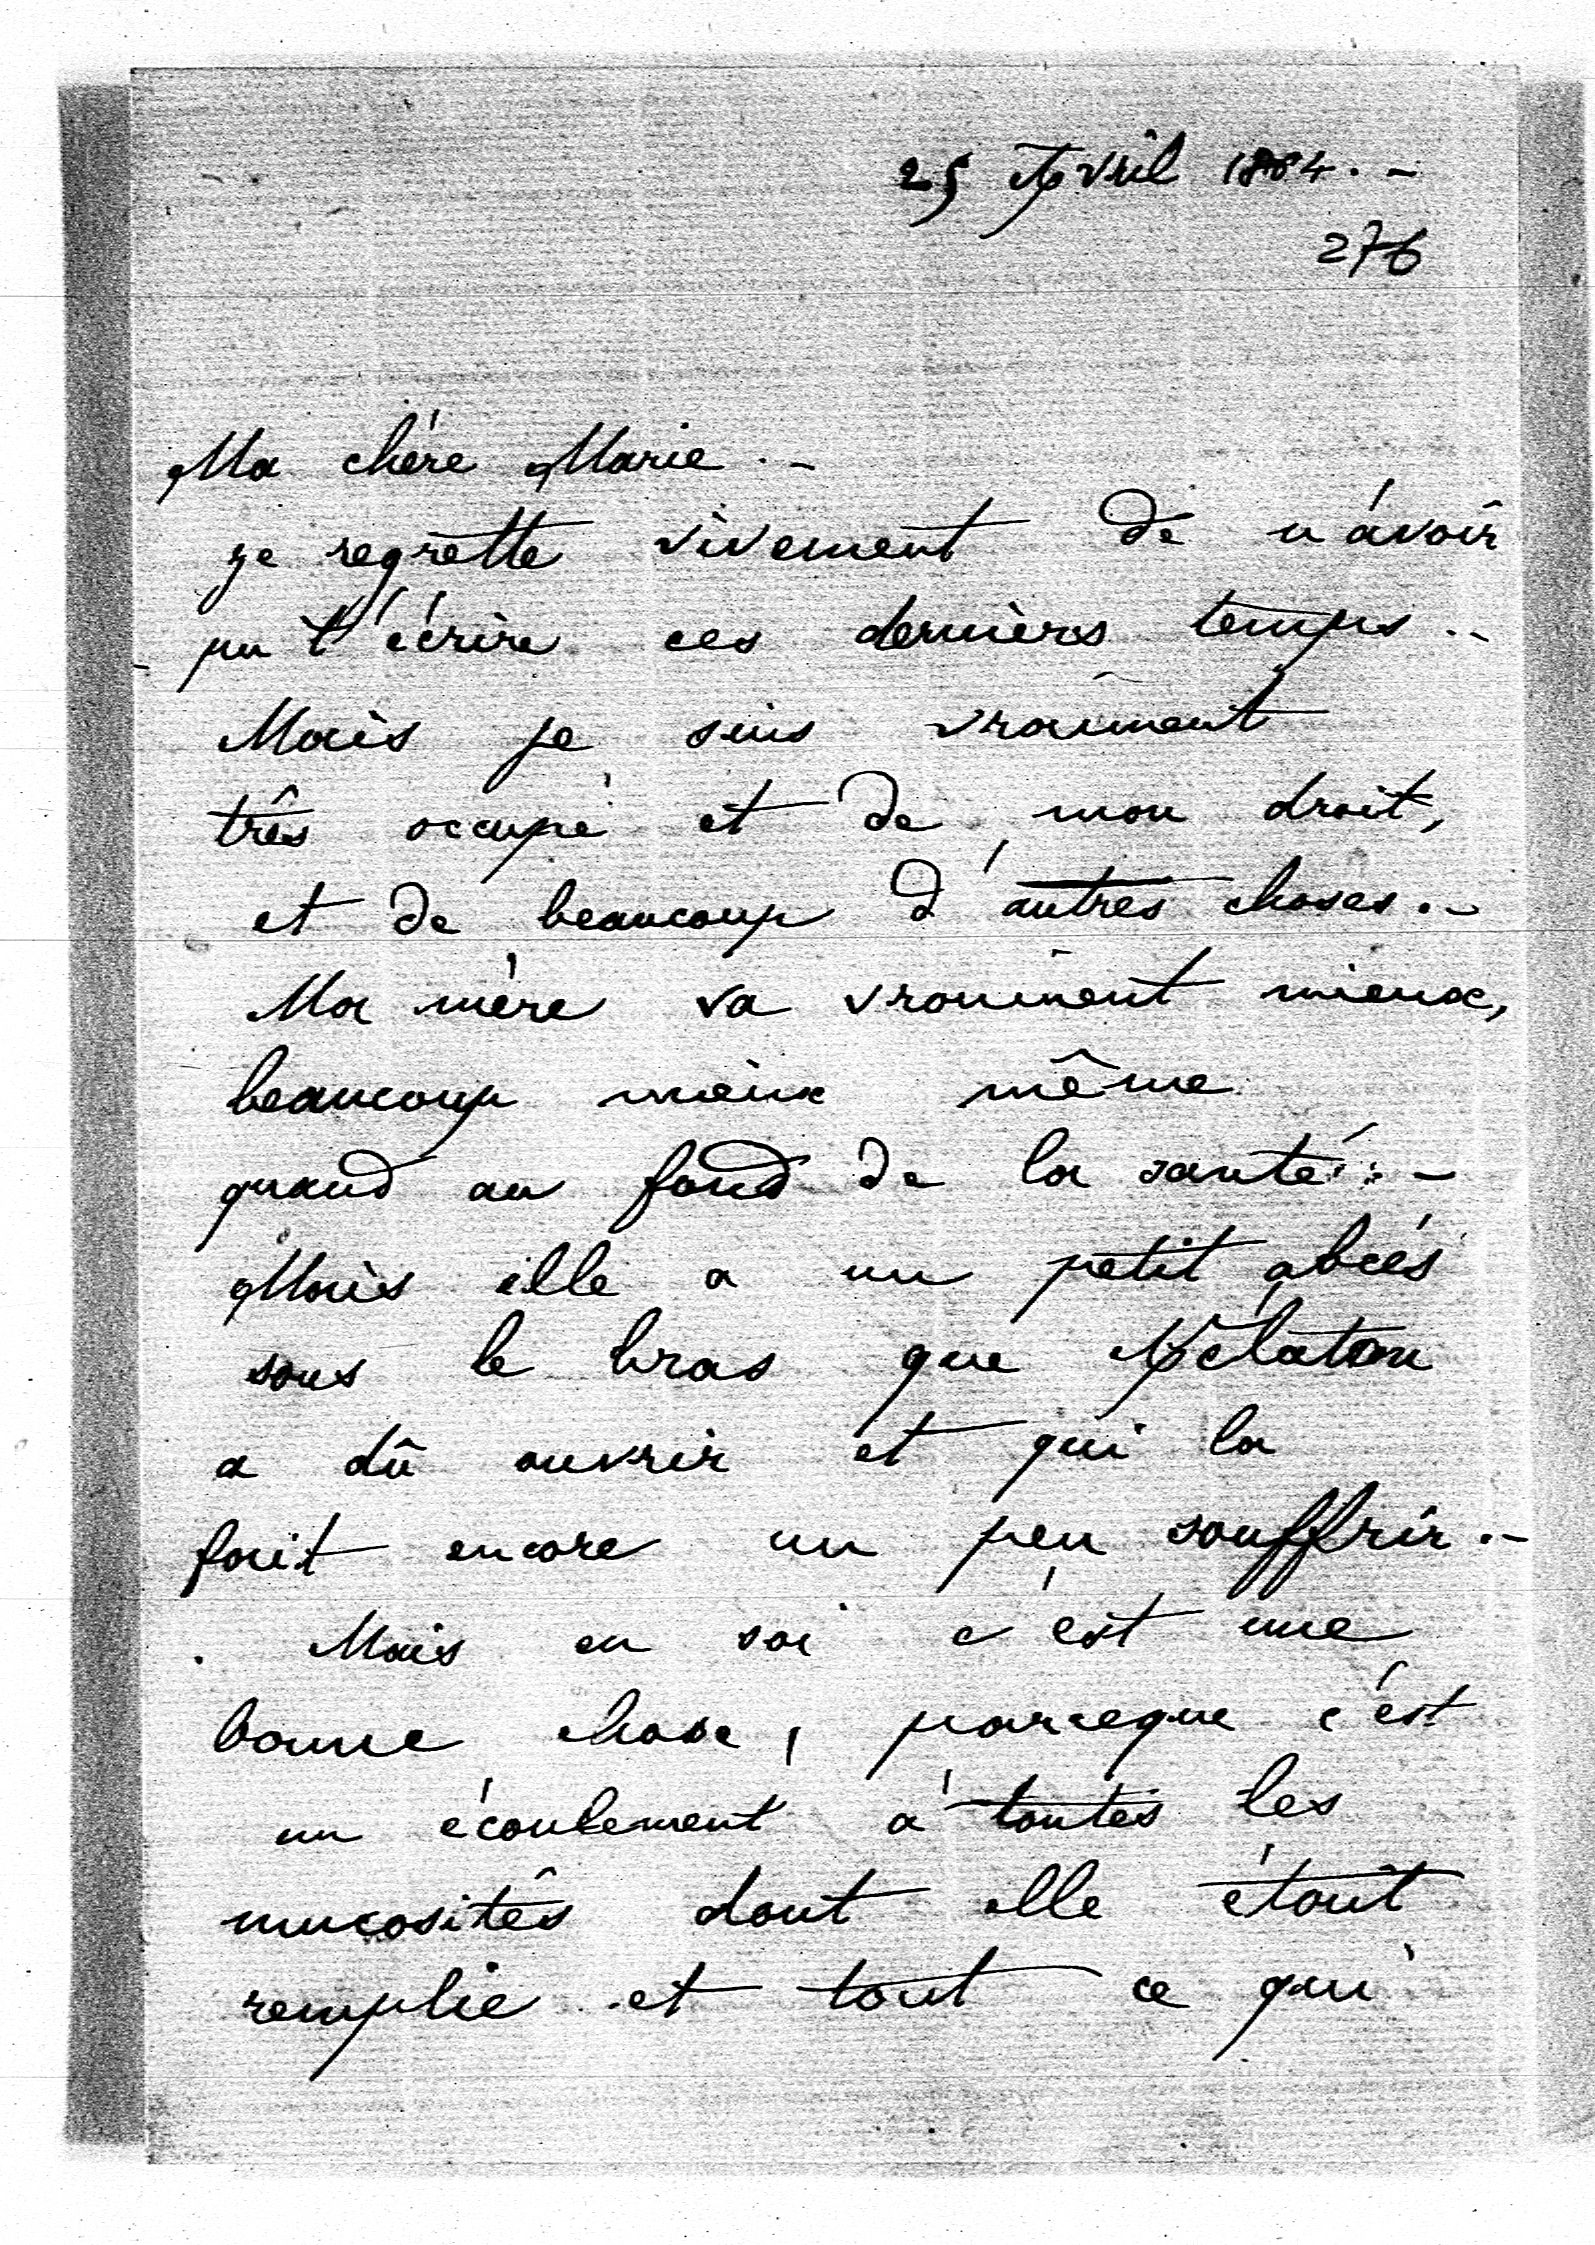 25 Avril 1864. -
276
Ma chère Marie. -
je regrette vivement de n'avoir
pu t'écrire ces derniers temps. -
Mais je suis vraiment
très occupé et de mon droit,
et de beaucoup d'autres choses. -
Ma mère va vraiment mieux,
beaucoup mieux même
quand au fond de la santé. -
Mais elle a un petit abcés
sous le bras que Nélaton
a dû ouvrir et qui la
fait encore un peu souffrir. -
Mais en soi c'est une
bonne chose, parceque c'est
un écoulement à toutes les
mucosités dont elle était
remplie et tout ce qui